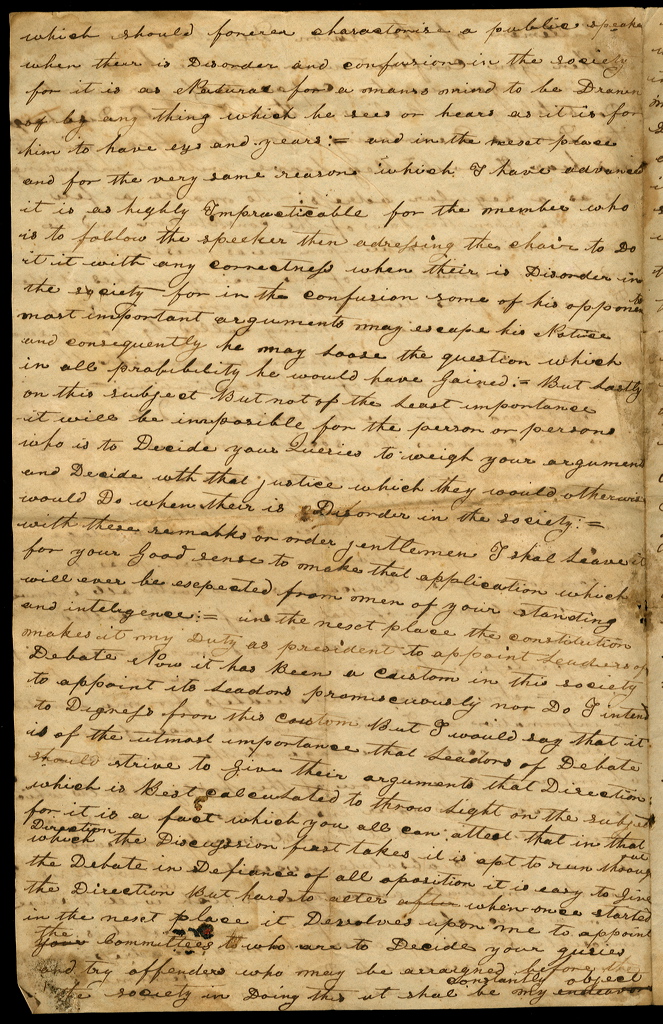 which should forever charactorise a public speake
when their is Disorder and confusion in the society
for it is as Natural for a mans mind to be Drawn
of by any thing which he sees or hears as it is for
him to have eys and years:= and in the nesct place
and for the very same reasons which I have advanced
it is as highly Impracticable for the member who
is to follow the speeker then adressing the chair to Do
it it with any correctness when their is Disorder in
the society for in the confusion some of his opponents
most important arguments may escape his Notice
and consequently he may loose the question which
in all probibility he would have Gained:= But Lastly
on this subject But not of the Least importance
it will be imposible for the person or persons
who is to Decide your Queries to weigh your arguments
and Decide wth that justice which they would otherwise
would Do when their is Disorder in the society:=
with these remakks on order jentlemen I shal Leave it
for your Good sense to make that application which
will ever be escpected from men of your standing
and inteligence:= in the nesct place the constitution
makes it my Duty as president to appoint Leaders of
Debate Now it has Been a custom in this society
to appoint its Leadors promiscuously nor Do I intend
to Digress from this custom But I would say that it
is of the utmost importance that Leadors of Debate
should strive to Give their arguments that Direction
which is Best calculated to throw Light on the subject
for it is a fact which you all can attest that in that
Direction
which the Discussion first takes it is apt to run through out
the Debate in Defiance of all oposition it is easy to Give
the Direction But hard to alter after when once started
in the nesct place it Desolves upon me to appoint
the
your Committees to who are to Decide your quries
and try offenders who may be arraigned before the
constantly object
the society in Doing this it shal be my endeavor